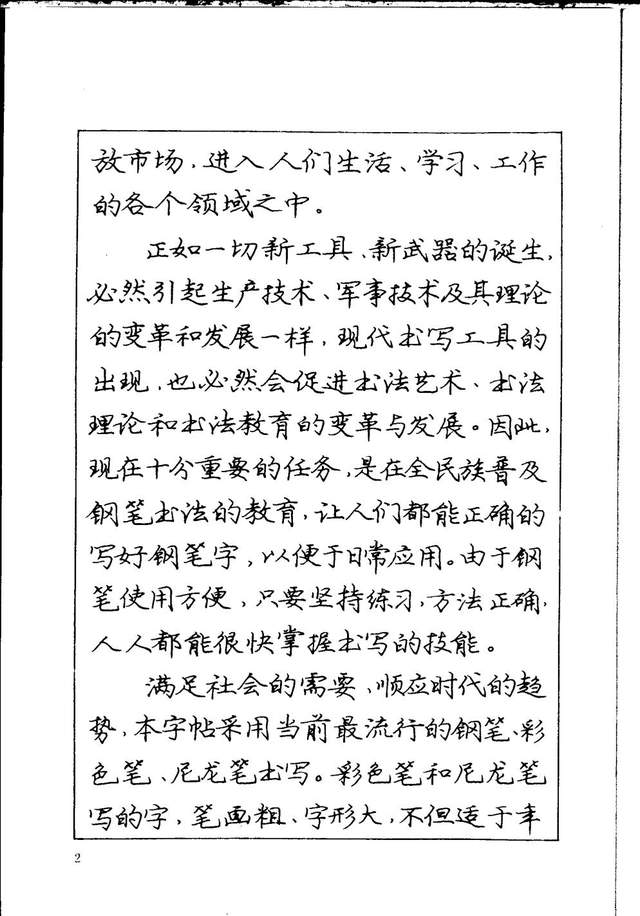 放市场，进入人们生活、学习、工作
的各个领域之中。
正如一切新工具、新武器的诞生，
必然引起生产技术、军事技术及其理论
的变革和发展一样，现代书写工具的
出现，也必然会促进书法艺术、书法
理论和书法教育的变革与发展。因此，
现在十分重要的任务，是在全民族普及
钢笔书法的教育，让人们都能正确的
写好钢笔字，以便于日常应用。由于钢
笔使用方便，只要坚持练习，方法正确，
人人都能很快掌握书写的技能。
满足社会的需要、顺应时代的趋
势，本字帖采用当前最流行的钢笔、彩
色笔、尼龙笔书写。彩色笔和尼龙笔
写的字，笔画粗、字形大，不但适于丰
2